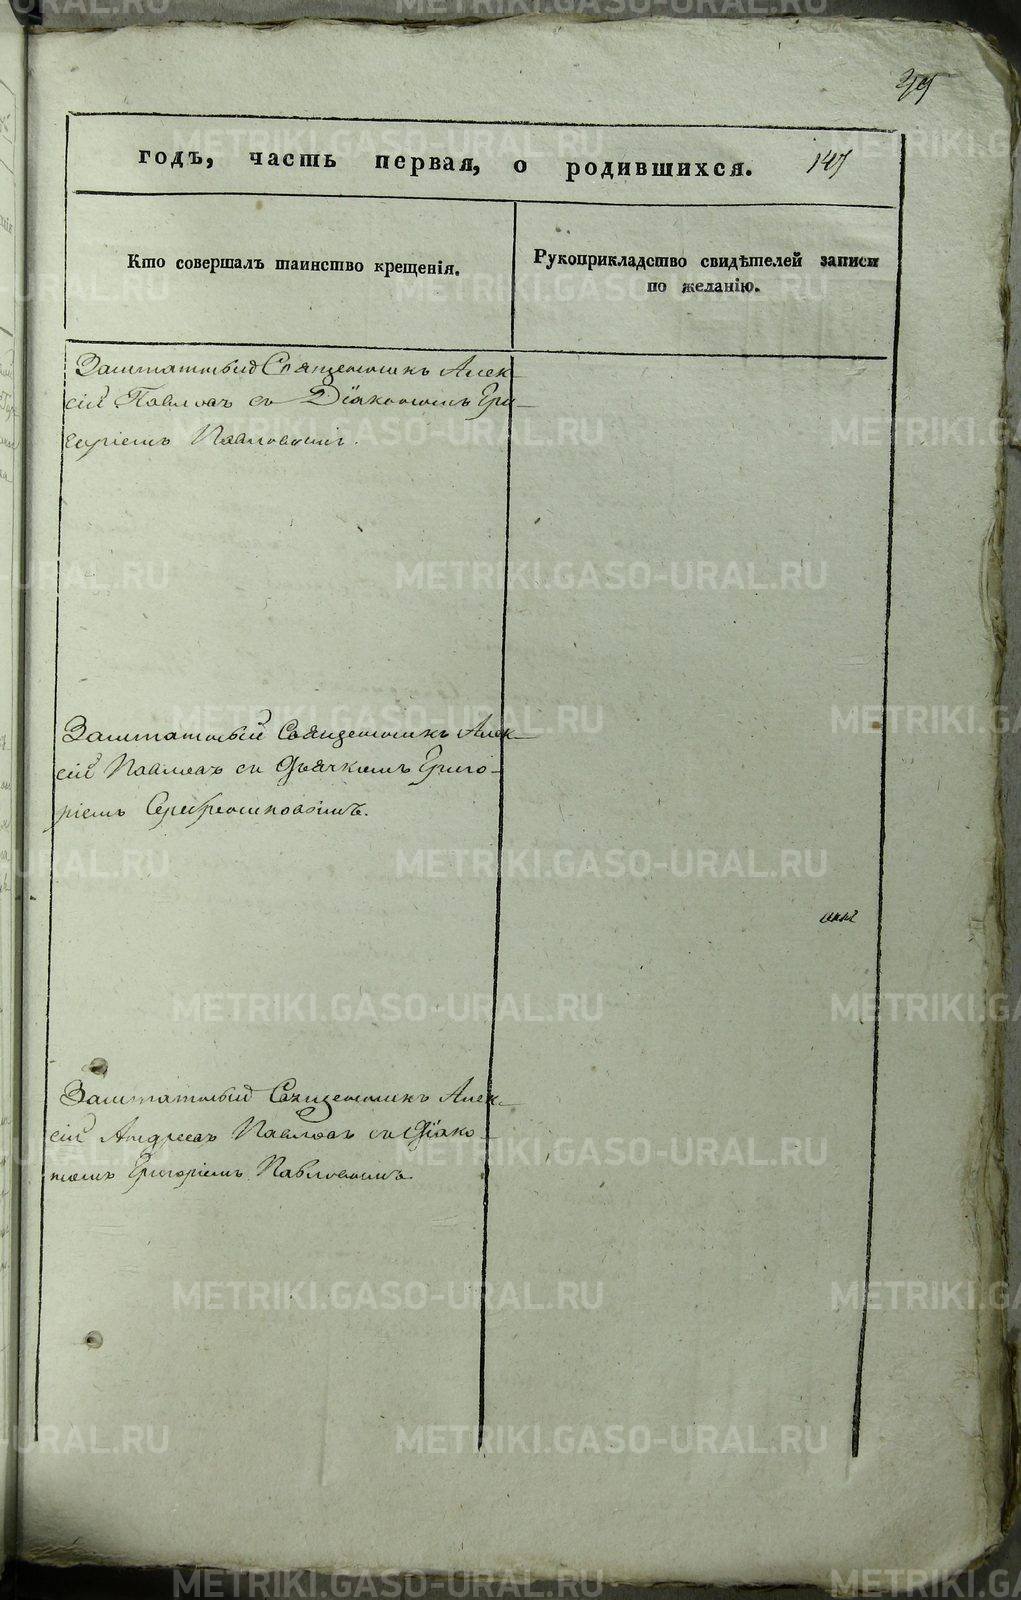 годъ, часть первая, о родившихся. 147
Кто совершалъ таинство крещенія.
Рукоприкладство свидѣтелей записи
по желанію.
Заштатный Священникъ Алек-
сій Павловъ съ Діакономъ Гри-
горіемъ Павловымъ.
Заштатный Священникъ Алек-
сій Павловъ съ Дьячкомъ Григо-
ріемъ Серебренниковымъ.
Заштатный Священникъ Алек-
сій Андреевъ Павловъ съ Діако-
номъ Григоріемъ Павловымъ
METRIKI.GASO-URAL.RU